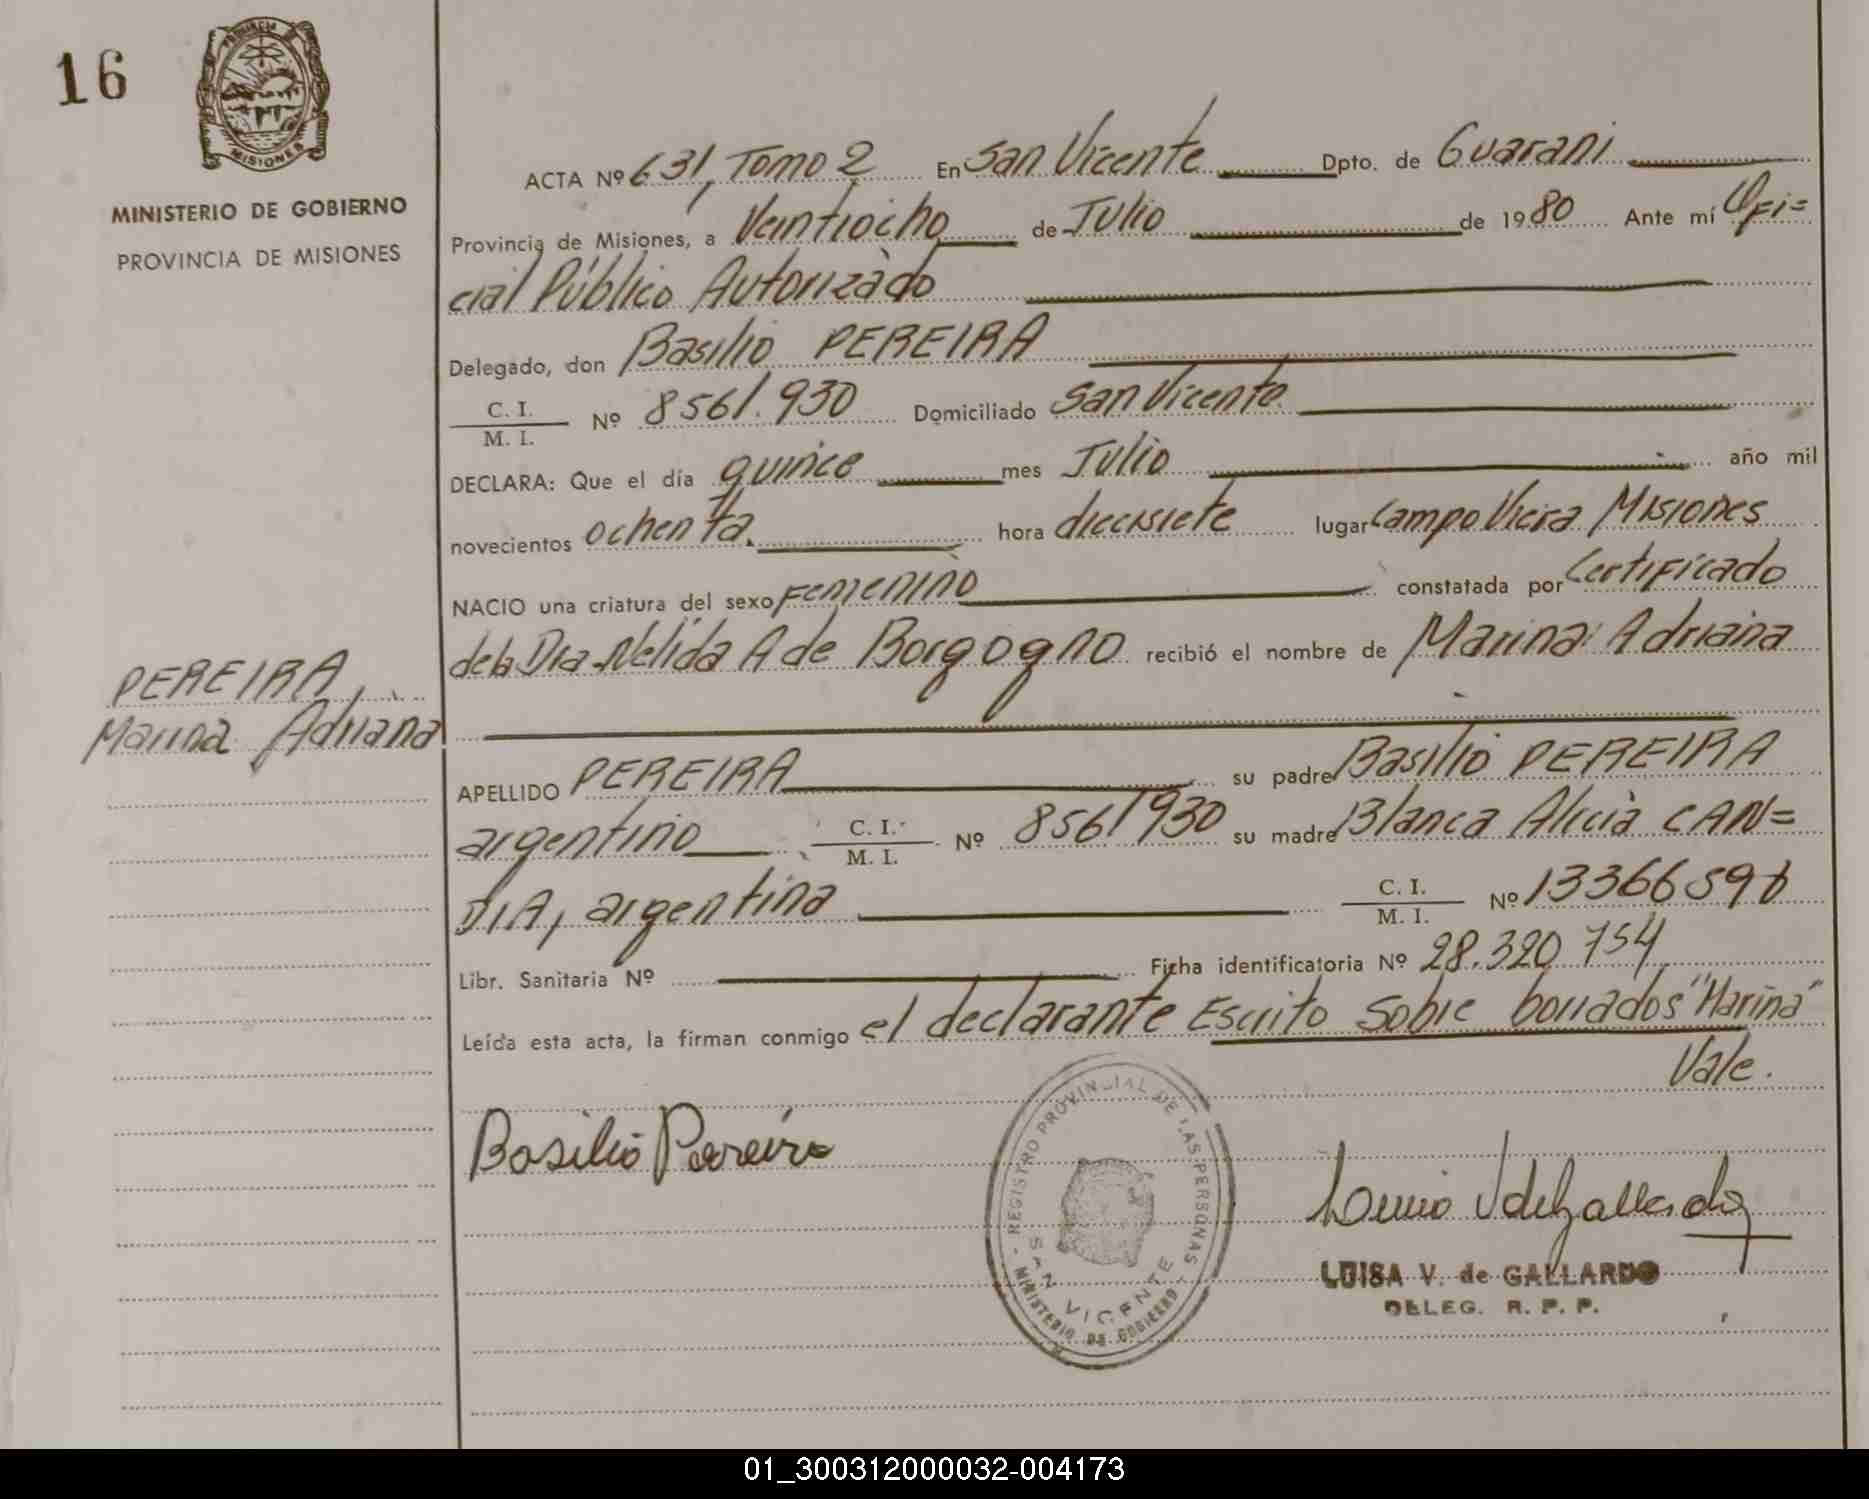 16
PROVINCIA DE
MISIONES
MINISTERIO DE GOBIERNO
PROVINCIA DE MISIONES
ACTA Nº 631, Tomo 2 En San Vicente Dpto. de Guarani
Provincia de Misiones, a Veintiocho de Julio de 1980 Ante mí Ofi=
cial Público Autorizado
Delegado, don Basilio PEREIRA
C. I.
M. I. Nº 8561.930 Domiciliado San Vicente
DECLARA: Que el día quince mes Julio año mil
novecientos ochenta. hora diecisiete lugar Campo Viera Misiones
NACIO una criatura del sexo Femenino constatada por Certificado
de la Dra Nelida A de Borgogno recibió el nombre de Marina Adriana
PEREIRA,
Marina Adriana
APELLIDO PEREIRA su padre Basilio PEREIRA
argentino C. I.
M. I. Nº 8561930 su madre Blanca Alicia CAN=
DIA, argentina C. I.
M. I. Nº 13366590
Libr. Sanitaria Nº Ficha identificatoria Nº 28.320.754
Leída esta acta, la firman conmigo el declarante Escrito sobre borrados "Marina"
Vale.
Basilio Pereira
REGISTRO PROVINCIAL DE LAS PERSONAS
SAN VICENTE
MINISTERIO DE GOBIERNO
LUISA V. de GALLARDO
DELEG. R. P. P.
01_300312000032-004173